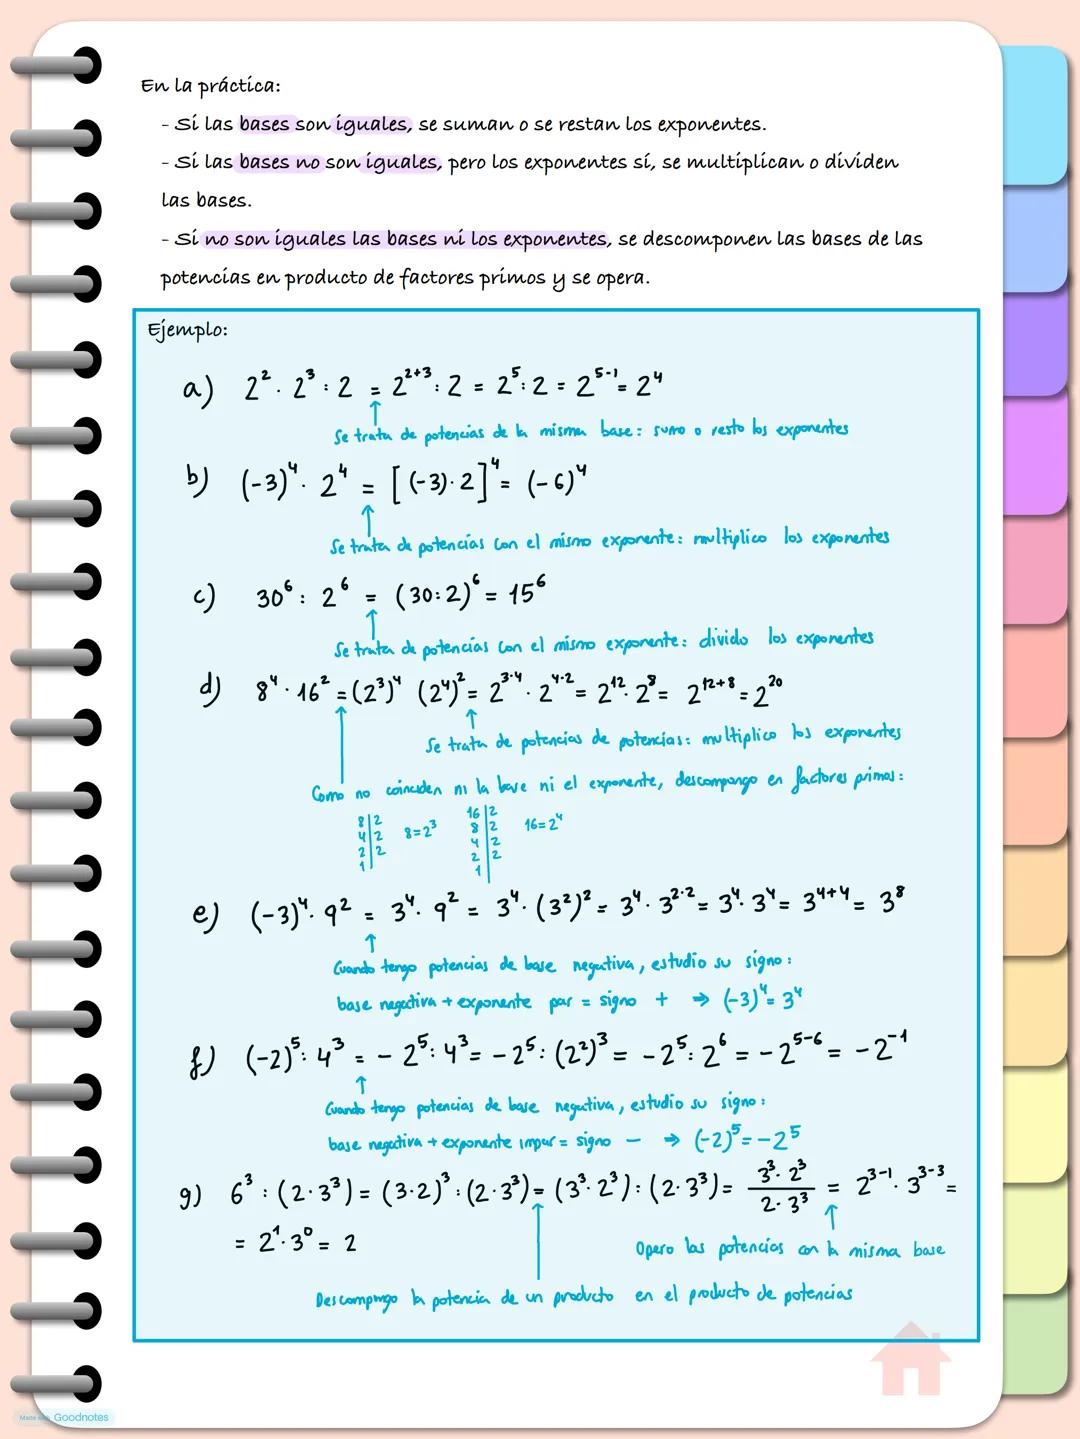 En la práctica:
- Si las bases son iguales, se suman o se restan los exponentes.
- Si las bases no son iguales, pero los exponentes sí, se multiplican o dividen
las bases.
- Si no son iguales las bases ni los exponentes, se descomponen las bases de las
potencias en producto de factores primos y se opera.
Ejemplo:
a) 2² · 2³ : 2 = 2²⁺³ : 2 = 2⁵ : 2 = 2⁵⁻¹ = 2⁴
Se trata de potencias de la misma base: sumo o resto los exponentes
b) (-3)⁴ · 2⁴ = [(-3)·2]⁴ = (-6)⁴
Se trata de potencias con el mismo exponente: multiplico los exponentes
c) 30⁶ : 2⁶ = (30:2)⁶ = 15⁶
Se trata de potencias con el mismo exponente: divido los exponentes
d) 8⁴ · 16² = (2³)⁴ (2⁴)² = 2³·⁴ · 2⁴·² = 2¹² · 2⁸ = 2¹²⁺⁸ = 2²⁰
Se trata de potencias de potencias: multiplico los exponentes
Como no coinciden ni la base ni el exponente, descompongo en factores primos:
8|2 16|2
4|2 8=2³ 8|2 16=2⁴
2|2 4|2
1| 2|2
1|
e) (-3)⁴ · 9² = 3⁴ · 9² = 3⁴ · (3²)² = 3⁴ · 3²·² = 3⁴ · 3⁴ = 3⁴⁺⁴ = 3⁸
Cuando tengo potencias de base negativa, estudio su signo:
base negativa + exponente par = signo + ⇒ (-3)⁴ = 3⁴
f) (-2)⁵ : 4³ = - 2⁵ : 4³ = - 2⁵ : (2²)³ = - 2⁵ : 2⁶ = - 2⁵⁻⁶ = - 2⁻¹
Cuando tengo potencias de base negativa, estudio su signo:
base negativa + exponente impar = signo - ⇒ (-2)⁵ = -2⁵
g) 6³ : (2·3³) = (3·2)³ : (2·3³) = (3³·2³) : (2·3³) = 3³·2³ / 2·3³ = 2³⁻¹ · 3³⁻³ =
= 2¹ · 3⁰ = 2
Opero las potencias con la misma base
Descompongo la potencia de un producto en el producto de potencias
Made with Goodnotes